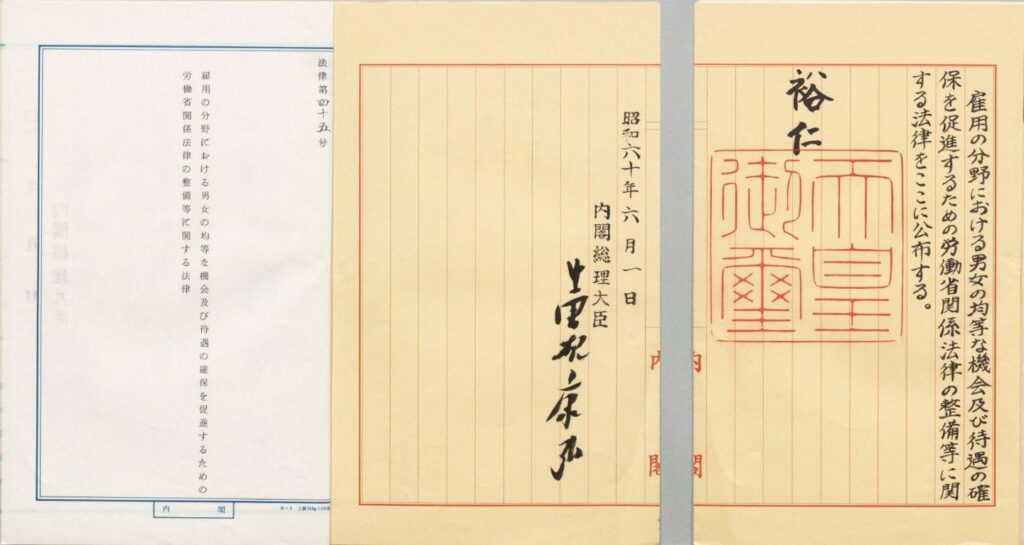 雇用の分野における男女の均等な機会及び待遇の確
保を促進するための労働省関係法律の整備等に関
する法律をここに公布する。
裕仁
天皇
御璽
内閣
昭和六十年六月一日
内閣総理大臣
中曽根康弘
内閣
法律第四十五号
雇用の分野における男女の均等な機会及び待遇の確保を促進するための
労働省関係法律の整備等に関する法律
内閣